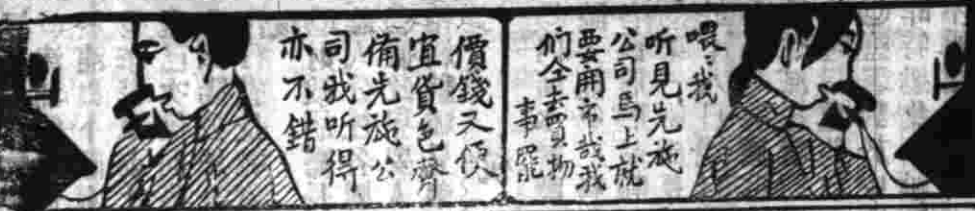 喂:我
听見先施
公司馬上就
要開市哉我
们仝去買物
事罷
價錢又便
宜貨色齊
備先施公
司我听得
亦不錯